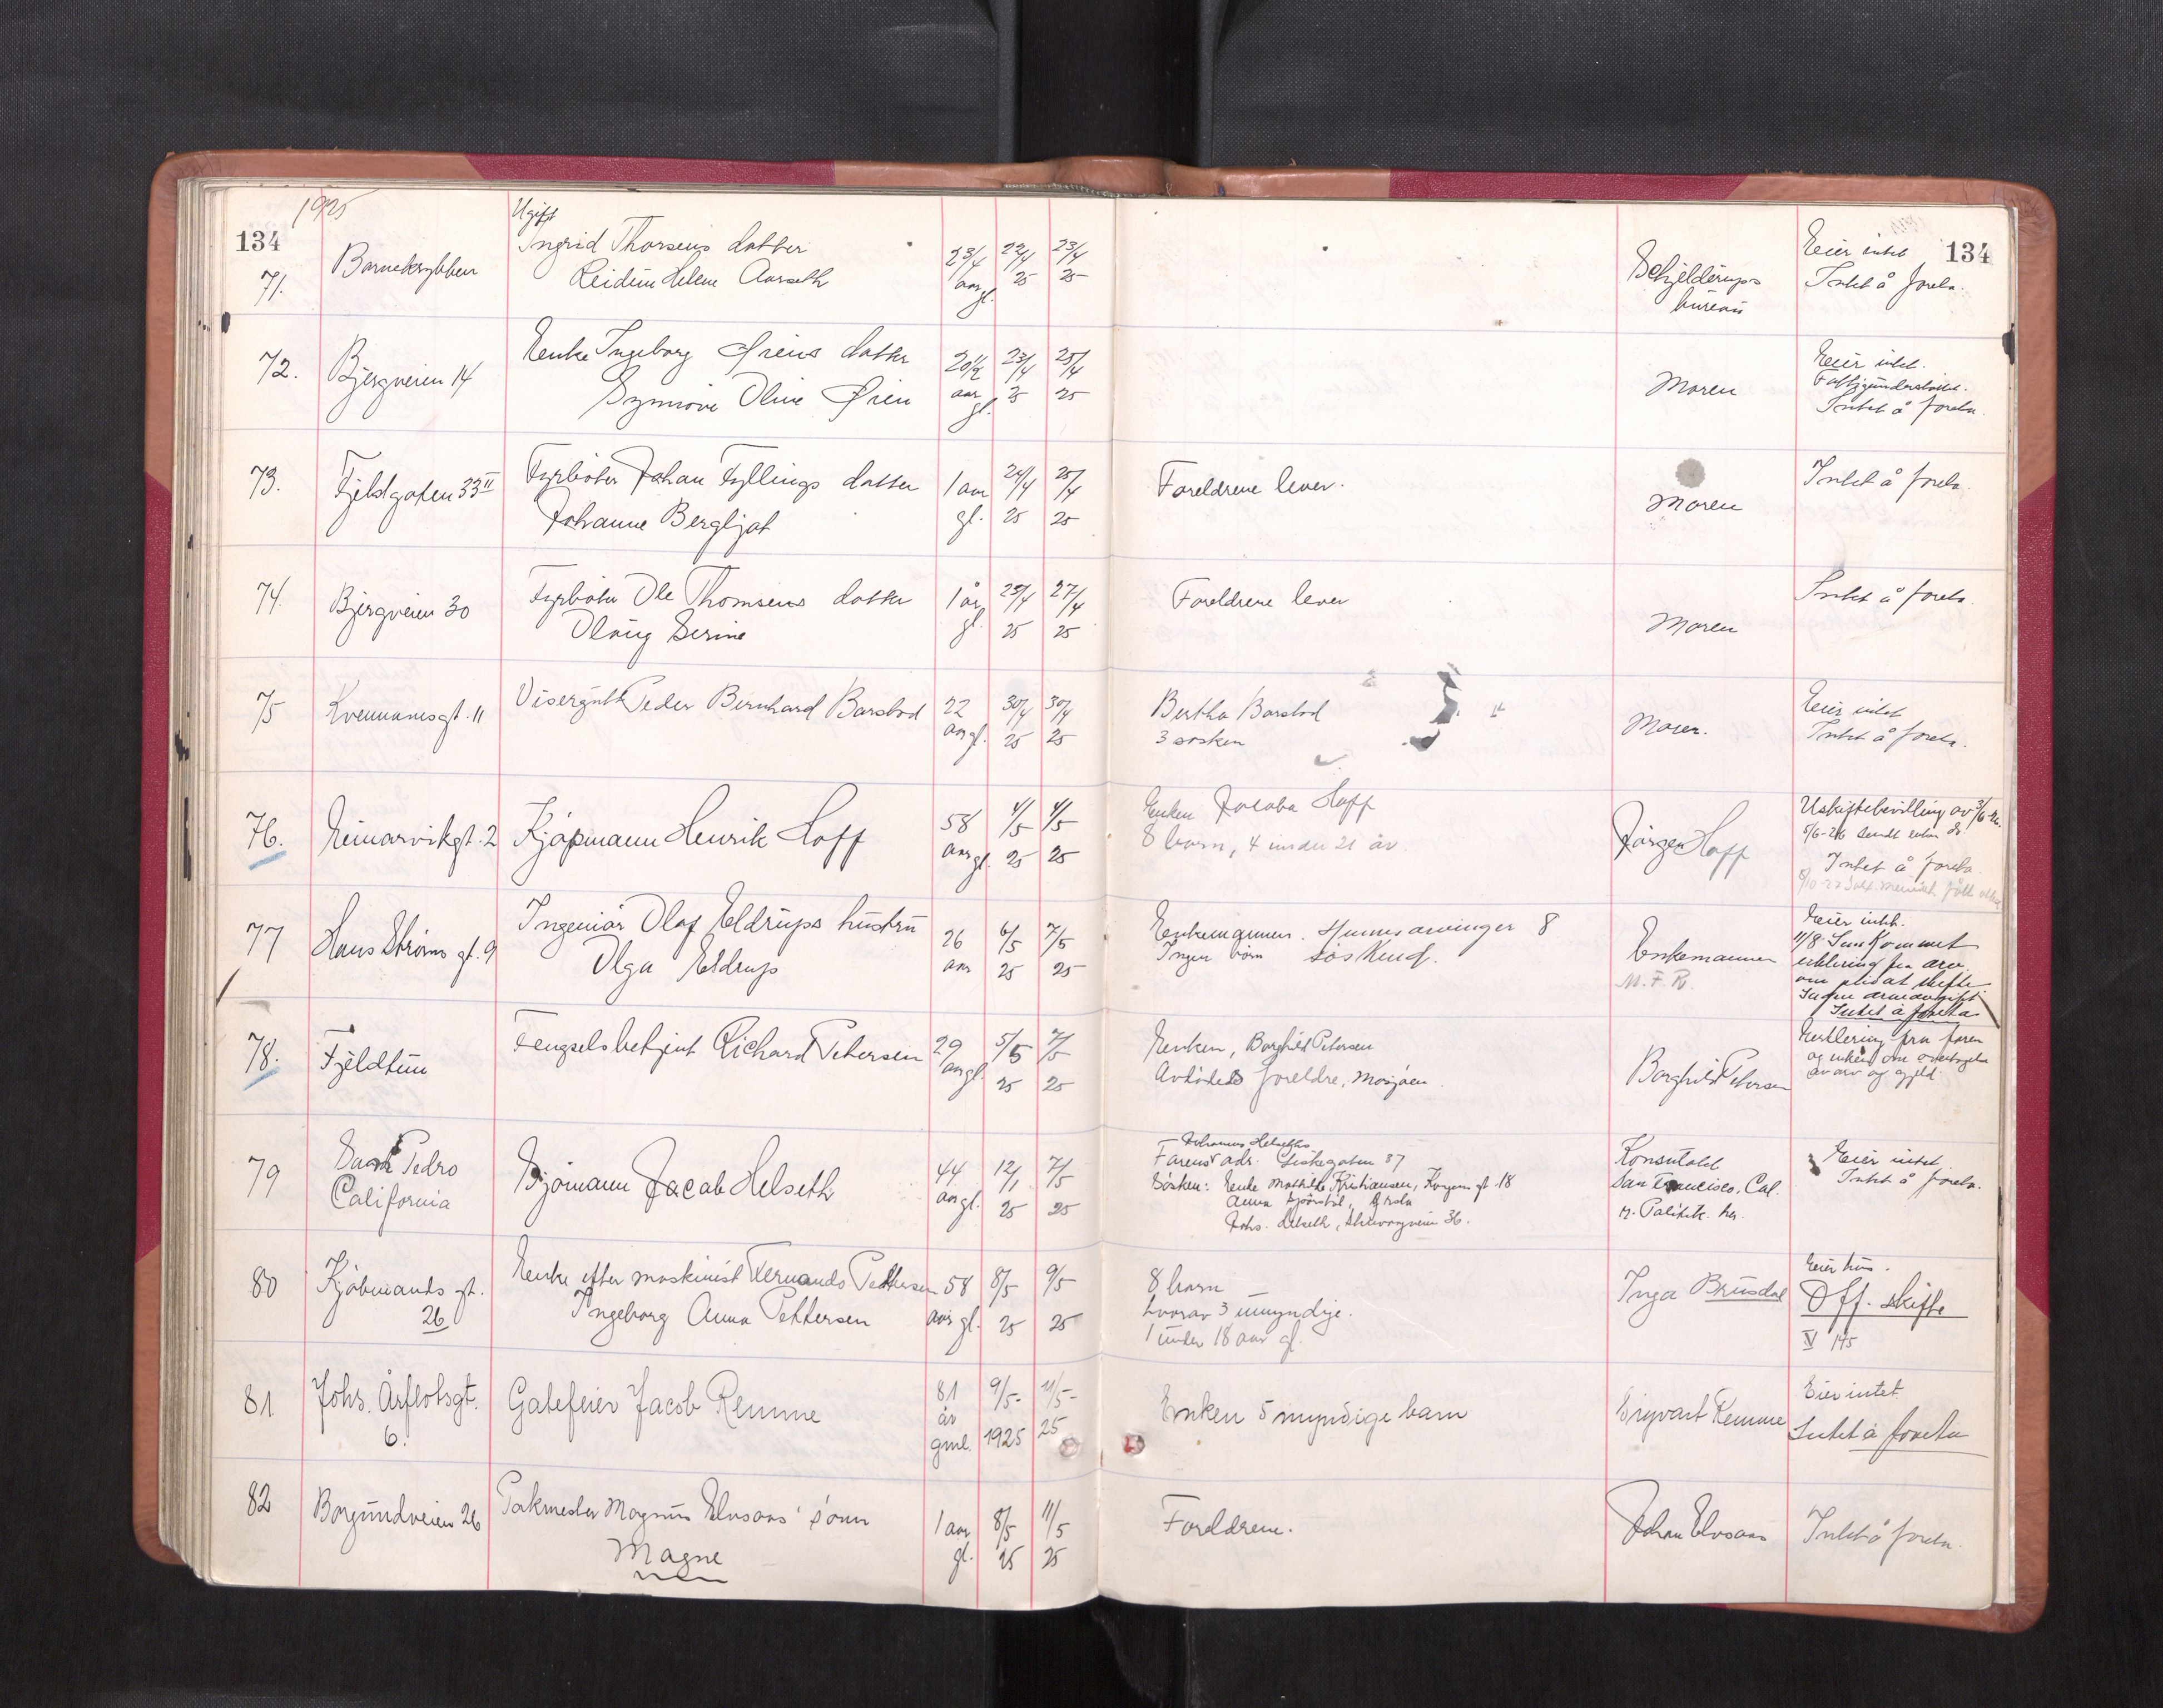 1925
134
134
71.
Barnekrybben
Ugift
Ingrid Thorsens datter
Reidun Helene Aarseth
2 3/4 aar gl.
22/4 25
23/4 25
Schjelderups bureau
Eier intet
Intet å foreta.
72.
Bjergveien 14
Enke Ingeborg Øiens datter
Synnøve Oline Øien
20 1/2 aar gl.
23/4 25
25/4 25
Moren
Eier intet.
Fattigunderstøttet.
Intet å foreta.
73.
Fjeldgaten 33 II
Fyrbøter Johan Fyllings datter
Johanne Bergljot
1 aar gl.
24/4 25
25/4 25
Foreldrene lever.
Moren
Intet å foreta.
74.
Bjergveien 30
Fyrbøter Ole Thomsens datter
Olaug Serine
1 år gl.
25/4 25
27/4 25
Foreldrene lever
Moren
Intet å foreta
75
Kvennanesgt. 11
Visergutt Peder Bernhard Barstad
22 aar gl.
30/4 25
30/4 25
Bertha Barstad
3 søsken
Moren.
Eier intet
Intet å foreta.
76.
Einarvikgt. 2
Kjøpmann Henrik Hoff
58 aar gl.
4/5 25
4/5 25
Enken Jacoba Hoff
8 barn, 4 under 21 år.
Jørgen Hoff
Uskiftebevilling av 3/6
5/6-26 sendt
Intet å foreta.
77
Hans Strøms gt. 9
Ingeniør Olaf Eldrups hustru
Olga Eldrup
26 aar
6/5 25
7/5 25
Enkemannen. Hennes arvinger 8
Ingen barn søskend.
Enkemannen
M.F.R.
Eier intet.
11/8 Innkommet
erklæring fra arv.
om privat skifte
Ingen arveavgift
Intet å foreta
78.
Fjeldtun
Fengselsbetjent Richard Petersen
29 aar gl.
5/5 25
7/5 25
Enken, Borghild Petersen
Avdødes foreldre, Mosjøen.
Borghild Petersen
Erklæring fra faren
og enken om overtagelse
av arv og gjeld.
79
San Pedro
California
Sjømann Jacob Helseth
44 aar gl.
12/1 25
7/5 25
Johannes Helseths
Farens adr. Lerkegaten 87
Søsken: Enke Mathilde Kristiansen, Kongens gt. 18
Johs. Helseth, 36.
Konsulatet
San Francisco, Cal.
Eier intet
Intet å foreta.
80
Kjøbmands gt.
26
Enke efter maskinist Fernando Pettersen
Ingeborg Anna Pettersen
58 aar gl.
8/5 25
9/5 25
8 barn
hvorav 3 umyndige.
1 under 18 aar gl.
Inga Brusdal
Eier hus.
Off. skifte
V 145
81
Johs. Aarflotsgt.
6.
Gatefeier Jacob Remme
81 år gml.
9/5- 1925
11/5- 25
Enken 5 myndige barn
Sigvart Remme
Eier intet.
Intet å foreta
82
Borgundveien 26
Takmester Magnus Elvsaas' sønn
Magne
1 aar gl.
8/5 25
11/5 25
Foreldrene.
Johan Elvsaas
Intet å foreta.